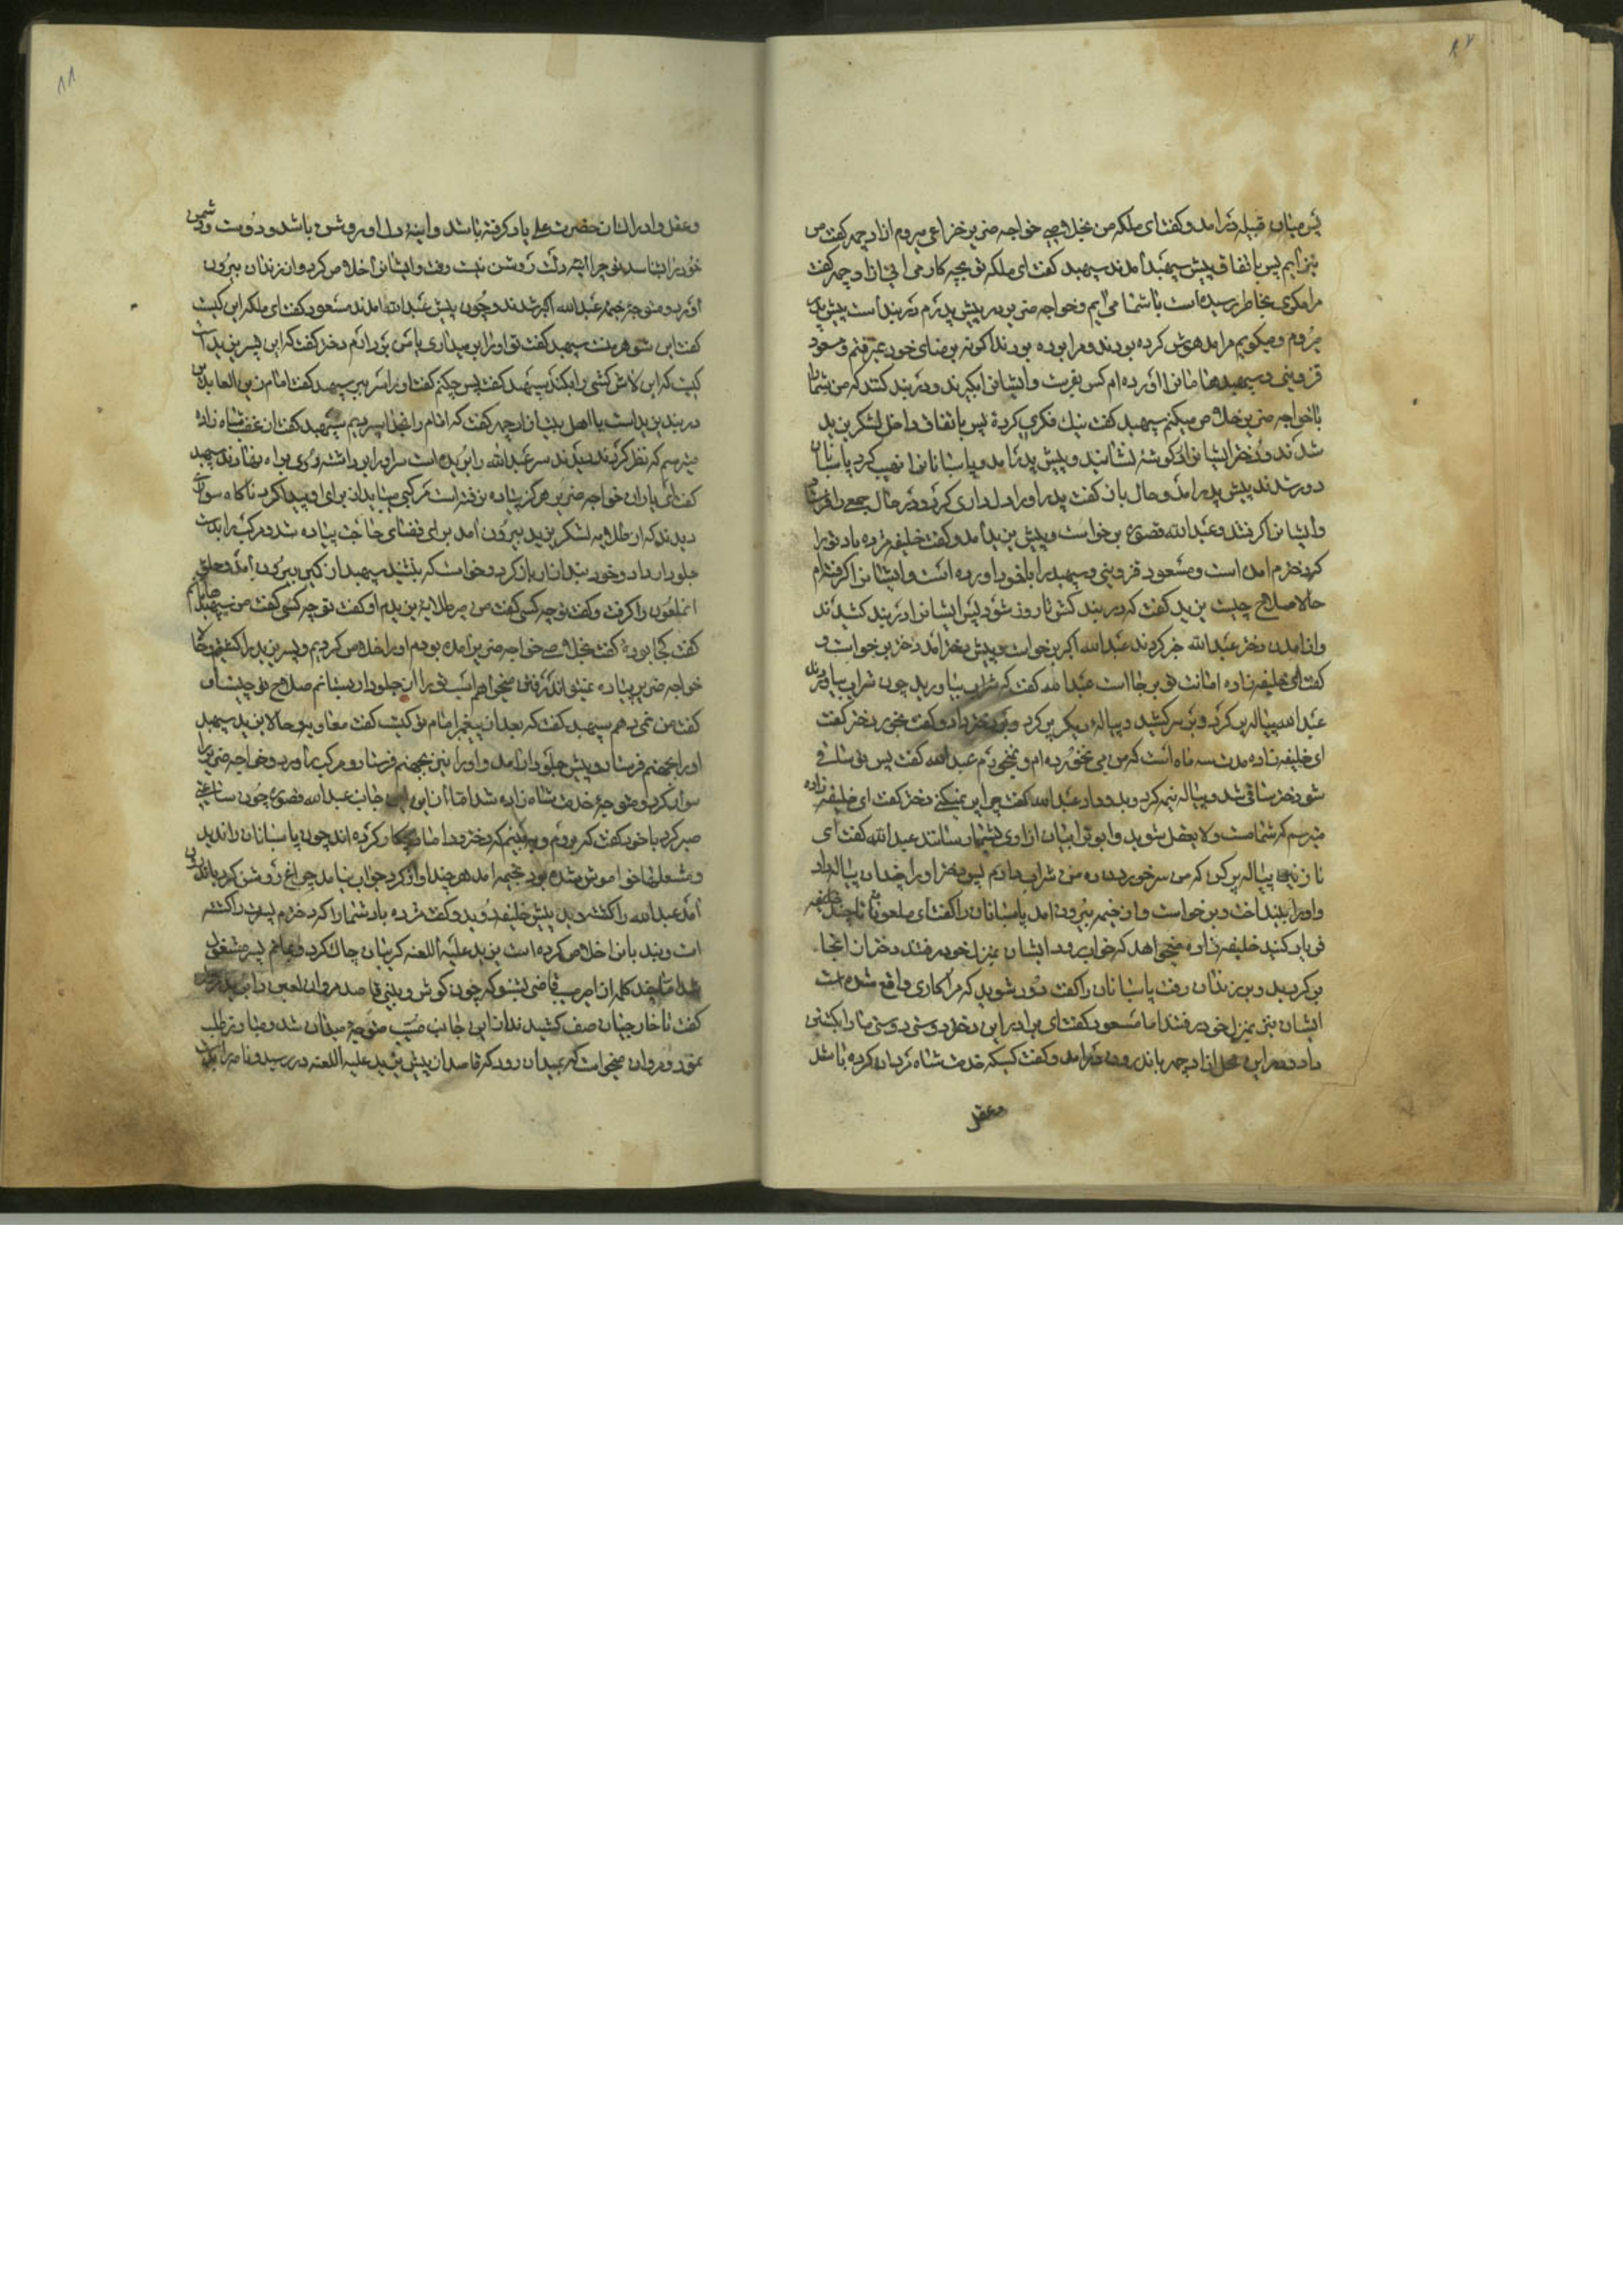 ۸۷
پس میان قبیله درآمد و گفت ای ملکه من بخلاصی خواجه ضریر خزاعی میروم ازادچهر گفت من
نیز آیم پس باتفاق پیش سپهبد آمدند سپهبد گفت ای ملکه تو بچه کار می ائی ازادچهر گفت
مرا مکری بخاطر رسیده است با شما می ایم و خواجه ضریر در پیش پدرم در بند است پیش پدر
میروم و میگویم مرا مدهوش کرده بودند و مرا برده بودند اکونه برضای خود نمیرفتم و مسعود
قزوینی و سپهبد را اورده ام کس بفرست و ایشانرا بگیرند و در بند کنند که من شما را
با خواجه ضریر خلاص میکنم سپهبد گفت نیک فکری کردهٔ پس باتفاق داخل لشکر یزید
شدند و دختر ایشانرا در گوشهٔ نشانند و پیش پدر آمد و پاسبانانرا نهیب کرد پاسبانان
دور شدند پیش پدر آمد و حال باز گفت پدر او را دلداری کرد و در حال جمعی را فرستاد
و ایشانرا گرفتند و عبدالله قصوری برخواست و پیش یزید آمد و گفت خلیفه مژده باد ترا
که دخترم آمده است و مسعود قزوینی و سپهبد را با خود آورده است و ایشانرا گرفته ام
حالا صلاح چیست یزید گفت که در بند کش تا روز شود پس ایشانرا در بند کشیدند
و از آمدن دختر عبدالله خبر کردند عبدالله اکبر برخواست و پیش دختر آمد دختر برخواست و
گفت ای خلیفه زاده امانت تو برجا است عبدالله گفت که شراب بیاورید چون شراب بیاوردند
عبدالله پیاله پر کرد و بر سر کشید و پیالهٔ دیگر پر کرد و بدختر داد و گفت بخور دختر گفت
ای خلیفه زاده مدت سه ماه است که من می نخورده ام و نمیخورم عبدالله گفت پس تو ساقی
شو دختر ساقی شد و پیاله نیمه کرد و بدو داد عبدالله گفت چرا پر نمیکنی دختر گفت ای خلیفه زاده
میترسم که شما مست و لایعقل شوید و ابوترابیان ازاری بشما رسانند عبدالله گفت ای
نازنین پیاله پر کن که من سر خوردن ده من شراب دارم پس دختر او را چندان پیاله داد
و او را بینداخت و برخواست و از خیمه بیرون آمد پاسبانان را گفت ای ملعونان تا چند
فریاد کنید خلیفه زاده میخواهد که خواب رود ایشان بمنزل خود رفتند دختر از انجا
برگردید و بر زندان رفت پاسبانان را گفت دور شوید که مرا کاری واقع شده است
ایشان نیز بمنزل خود رفتند اما مسعود گفت ای برادر این دختر دوستی دوستی ما را بکشتن
داد در این محل ازادچهر باندرون درآمد و گفت کسیکه خدمت شاه مردان کرده باشد
وعقل
۸۸
و عقل و ادراک از حضرت علی یاد گرفته باشد و اینهٔ دل او روشن باشد دوست و دشمن
خود را شناسد تو چرا اینه دلت روشن نیست رفت و ایشانرا خلاص کرد و از زندان بیرون
آورد و متوجه خیمهٔ عبدالله اکبر شدند و چون پیش عبدالله آمدند مسعود گفت ای ملکه این کیست
گفت این شوهر منست سپهبد گفت تو او را بیداری باش بردارم دختر گفت که این پسر یزید است
کیست که این لاش کشی را بکند سپهبد گفت پس چکنم گفت او را سر ببر سپهبد گفت امام زین العابدین
در بند یزید است با اهل بیت ازادچهر گفت که امام را بخدا سپردیم سپهبد گفت از غصهٔ شاه زاده
میترسم که نظر کردند دیدند سر عبدالله را بریده است سر او را برداشته روی براه نهادند سپهبد
گفت ای یاران خواجه ضریر هرگز پیاده نرفته است مرکبی میباید از برای او پیدا کرد ناگاه سواری
دیدند که از طلایه لشکر یزید بیرون آمد برای قضای حاجت پیاده شد و مرکب را بدست
جلودار داد و خود بند ازار باز کرد و خواست که بنشیند سپهبد از کمین بیرون آمد و حلق
انملعون را گرفت و گفت تو چه کسی گفت من میر طلایهٔ یزیدم او گفت تو چه کسی گفت من سپهبد
گفت کجا بودهٔ گفت بخلاصی خواجه ضریر آمده بودم او را خلاص کردیم و پسر یزید را کشتیم و حالا
خواجه ضریر پیاده نمیتواند رفتن میخواهم اسب ترا از جلودار بستانم صلاح تو چیست او
گفت من نمی دهم سپهبد گفت که بعد از پیغمبر امام تو کیست گفت معاویه و حالا یزید سپهبد
او را بجهنم فرستاد و پیش جلودار آمد و او را نیز بجهنم فرستاد و مرکب را آورد و خواجه ضریر را
سوار کرد و متوجهٔ خدمت شاه زاده شد اما از این جانب عبدالله قصوری چون ساعتی
صبر کرد با خود گفت که بروم و ببینم که دختر و داماد چکار کرده اند چون پاسبانان را ندید
و مشعلها خواموش شده بود بخیمه آمد هر چند اواز کرد جواب نیامد چراغ روشن کرد باندرون
آمد عبدالله را کشته دید پیش خلیفه دوید و گفت مژده باد شما را که دخترم پسرت را کشته
است و بندیانرا خلاص کرده است یزید علیه اللعنه گریبان چاک کرد و بماتم پسر مشغول
شد اما چند کلمه از امیر مسیب قاضی بشنو که چون گوش و بینی قاصد مروان لعین را برید
گفت تا خارجیان صف کشیدند از این جانب مسیب متوجهٔ میدان شد و مبارز طلب
نمود و مروان میخواست که بمیدان رود که قاصد از پیش یزید علیه اللعنه در رسید و نامه را بدست